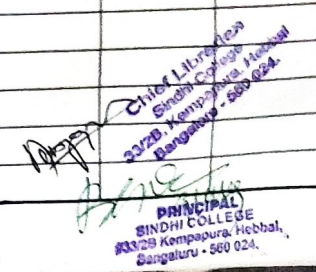 Chief Librarian
Sindhi College
33/2B, Kempapura, Hebbal
Bangaluru - 560 024.
PRINCIPAL
SINDHI COLLEGE
#33/2B Kempapura, Hebbal,
Bangaluru - 560 024.